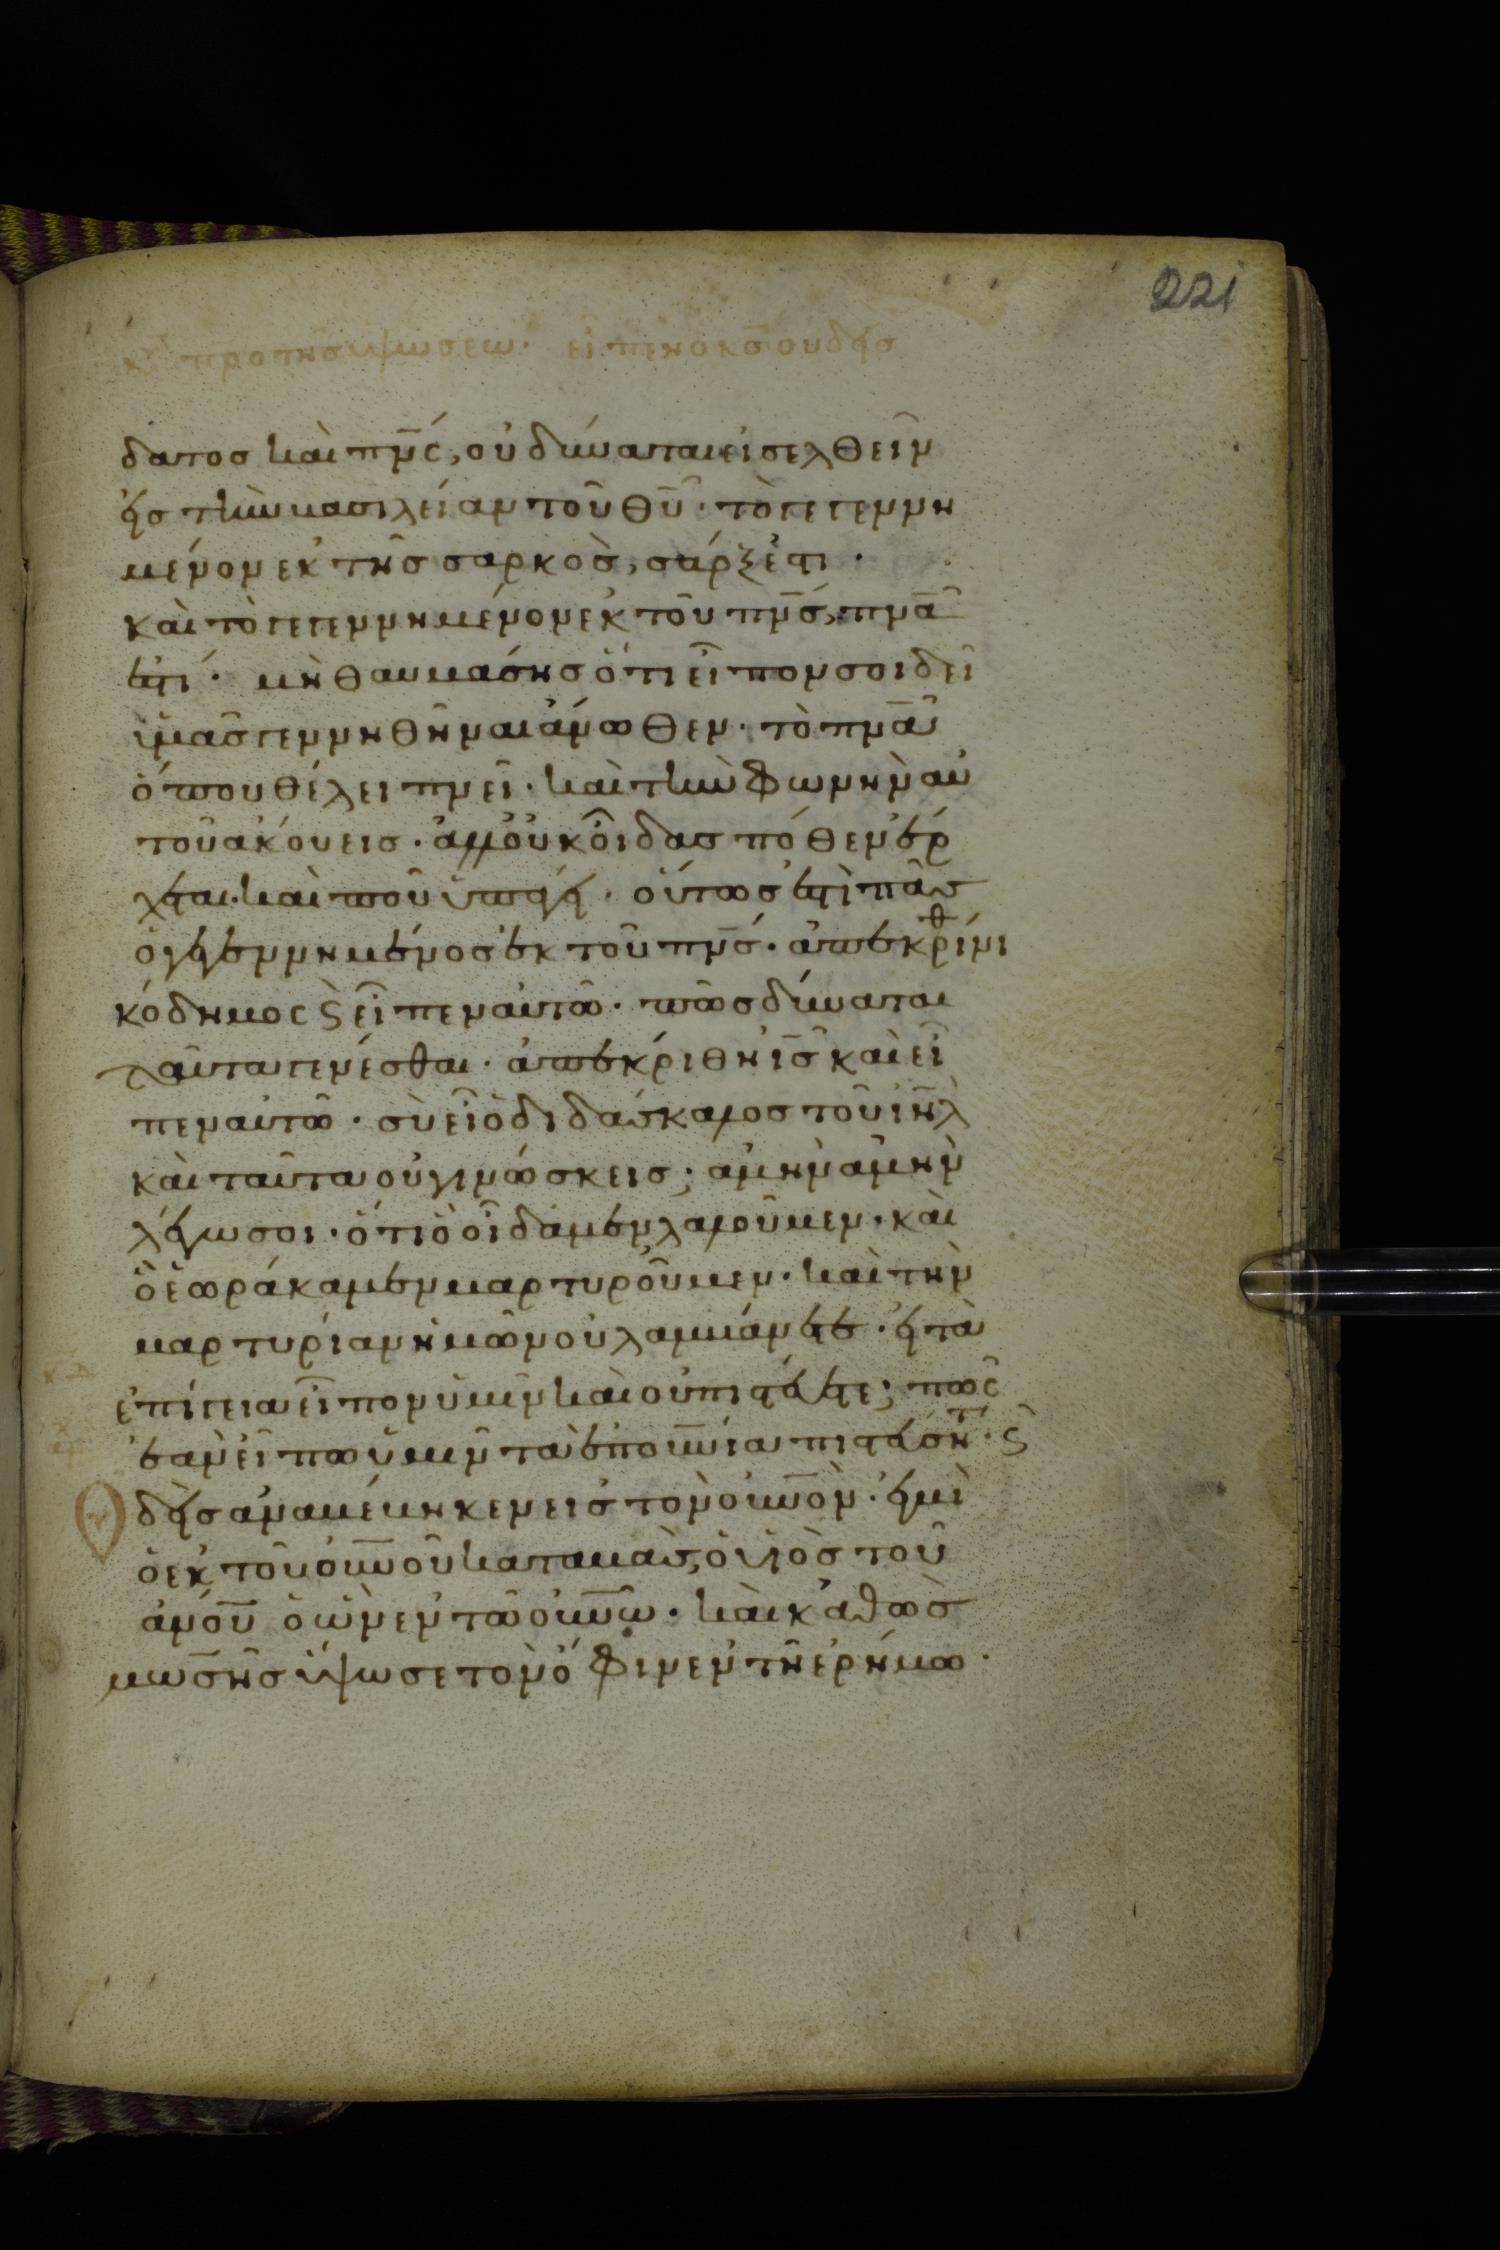 221
προ της υψωσεω· εἶπεν ὁ κς̅ ουδεις
δατος καὶ πν̅ς, οὐ δύναται εἰσελθεῖν
εἰς τὴν βασιλείαν τοῦ θυ̅· τὸ γεγεννη
μένον ἐκ τῆς σαρκὸς, σάρξ ἐστι·
καὶ τὸ γεγεννημένον ἐκ του πν̅ς, πν̅α
ἐστι· μὴ θαυμάσης ὅτι εἶπον σοι δεῖ
ὑμᾶς γεννηθῆναι ἄνωθεν· τὸ πν̅α
ὅπου θέλει πνεῖ· καὶ τὴν φωνὴν αὐ
τοῦ ἀκούεις· ἀλλ' οὐκ οἶδας πόθεν ἔρ
χεται· καὶ ποῦ ὑπάγει· οὕτως ἐστὶ πᾶς
ὁ γεγεννημένος ἐκ τοῦ πν̅ς· ἀπεκρίθ νι
κόδημος ϛ εἶπεν αὐτῶ· πῶς δύναται
ταῦτα γενέσθαι· ἀπεκρίθη ις̅ καὶ εἶ
πεν αὐτῶ· σὺ εἶ ὁ διδάσκαλος τοῦ ιη̅λ
καὶ ταῦτα οὐ γινώσκεις; ἀμὴν ἀμὴν
λέγω σοι· ὅτι ὃ οἴδαμεν λαλοῦμεν· καὶ
ὃ ἑωράκαμεν μαρτυροῦμεν· καὶ τὴν
μαρτυρίαν ἡμῶν οὐ λαμβάνετε· εἰ τὰ
ἐπίγεια εἶπον ὑμῖν καὶ οὐ πιστεύετε; πῶς
ἐὰν εἴπω ὑμῖν τὰ ἐπουν̅ία πιστεύσητ· ϛ
οὐδεὶς ἀναβέβηκεν εἰς τὸν οὐν̅ὸν· εἰ μὴ
ὁ ἐκ τοῦ οὐν̅οῦ καταβὰς, ὁ υἱὸς τοῦ
ἀν̅ου ὁ ὢν ἐν τῶ οὐν̅ῶ· καὶ καθὼς
μωσῆς ὕψωσε τὸν ὄφιν ἐν τῆ ἐρήμω·